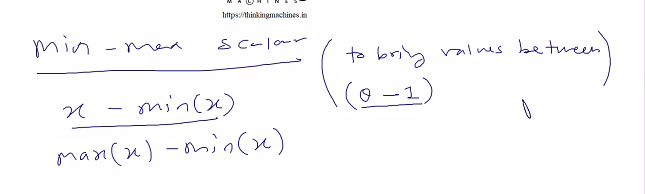 MACHINES
https://thinkingmachines.in
min - max scalar (to bring values between (0 - 1))
x - min(x)
max(x) - min(x)